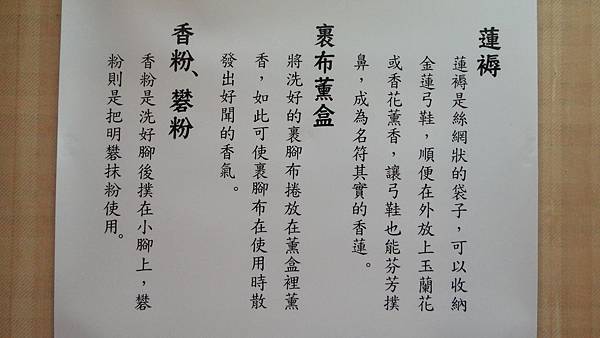 蓮褥
蓮褥是絲網狀的袋子，可以收納
金蓮弓鞋，順便在外放上玉蘭花
或香花薰香，讓弓鞋也能芬芳撲
鼻，成為名符其實的香蓮。
裹布薰盒
將洗好的裹腳布捲放在薰盒裡薰
香，如此可使裹腳布在使用時散
發出好聞的香氣。
香粉、礬粉
香粉是洗好腳後撲在小腳上，礬
粉則是把明礬抹粉使用。